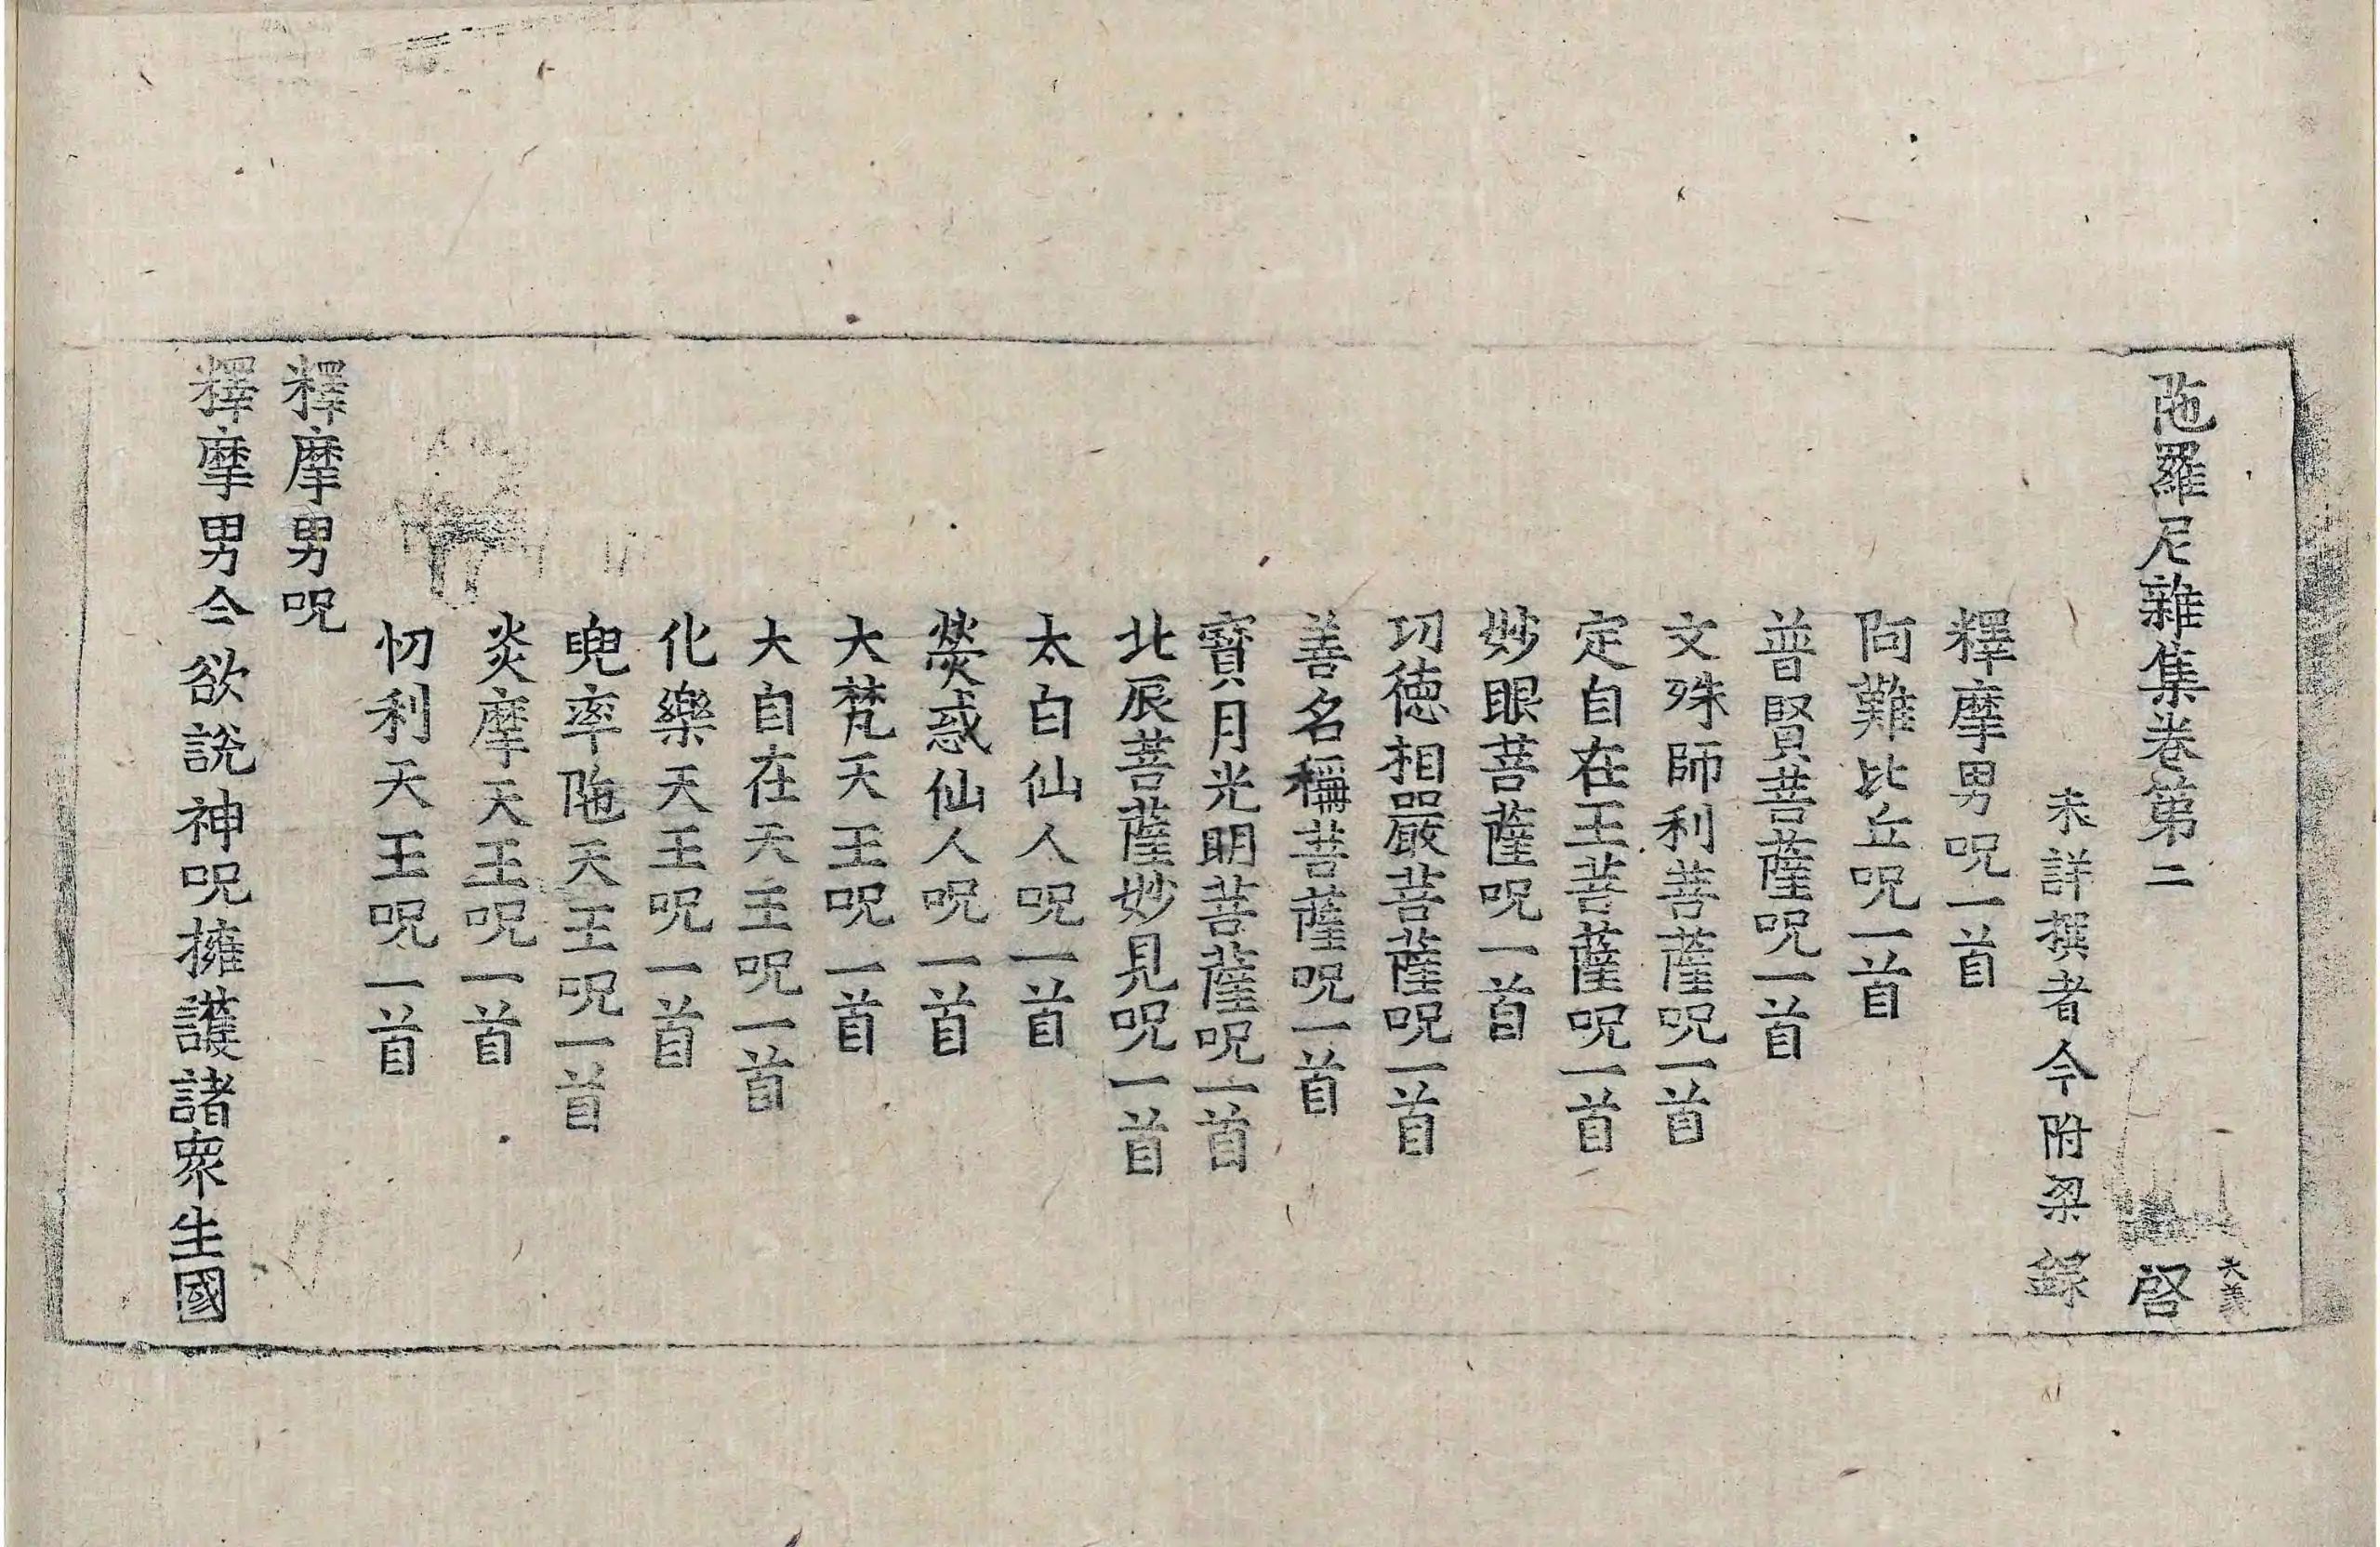 陁羅尼雜集卷第二 啓
未詳撰者今附梁錄
釋摩男呪一首
阿難比丘呪一首
普賢菩薩呪一首
文殊師利菩薩呪一首
定自在王菩薩呪一首
妙眼菩薩呪一首
功德相嚴菩薩呪一首
善名稱菩薩呪一首
寶月光明菩薩呪一首
北辰菩薩妙見呪一首
太白仙人呪一首
熒惑仙人呪一首
大梵天王呪一首
大自在天王呪一首
化樂天王呪一首
兜率陁天王呪一首
炎摩天王呪一首
忉利天王呪一首
釋摩男呪
釋摩男今欲說神呪擁護諸衆生國